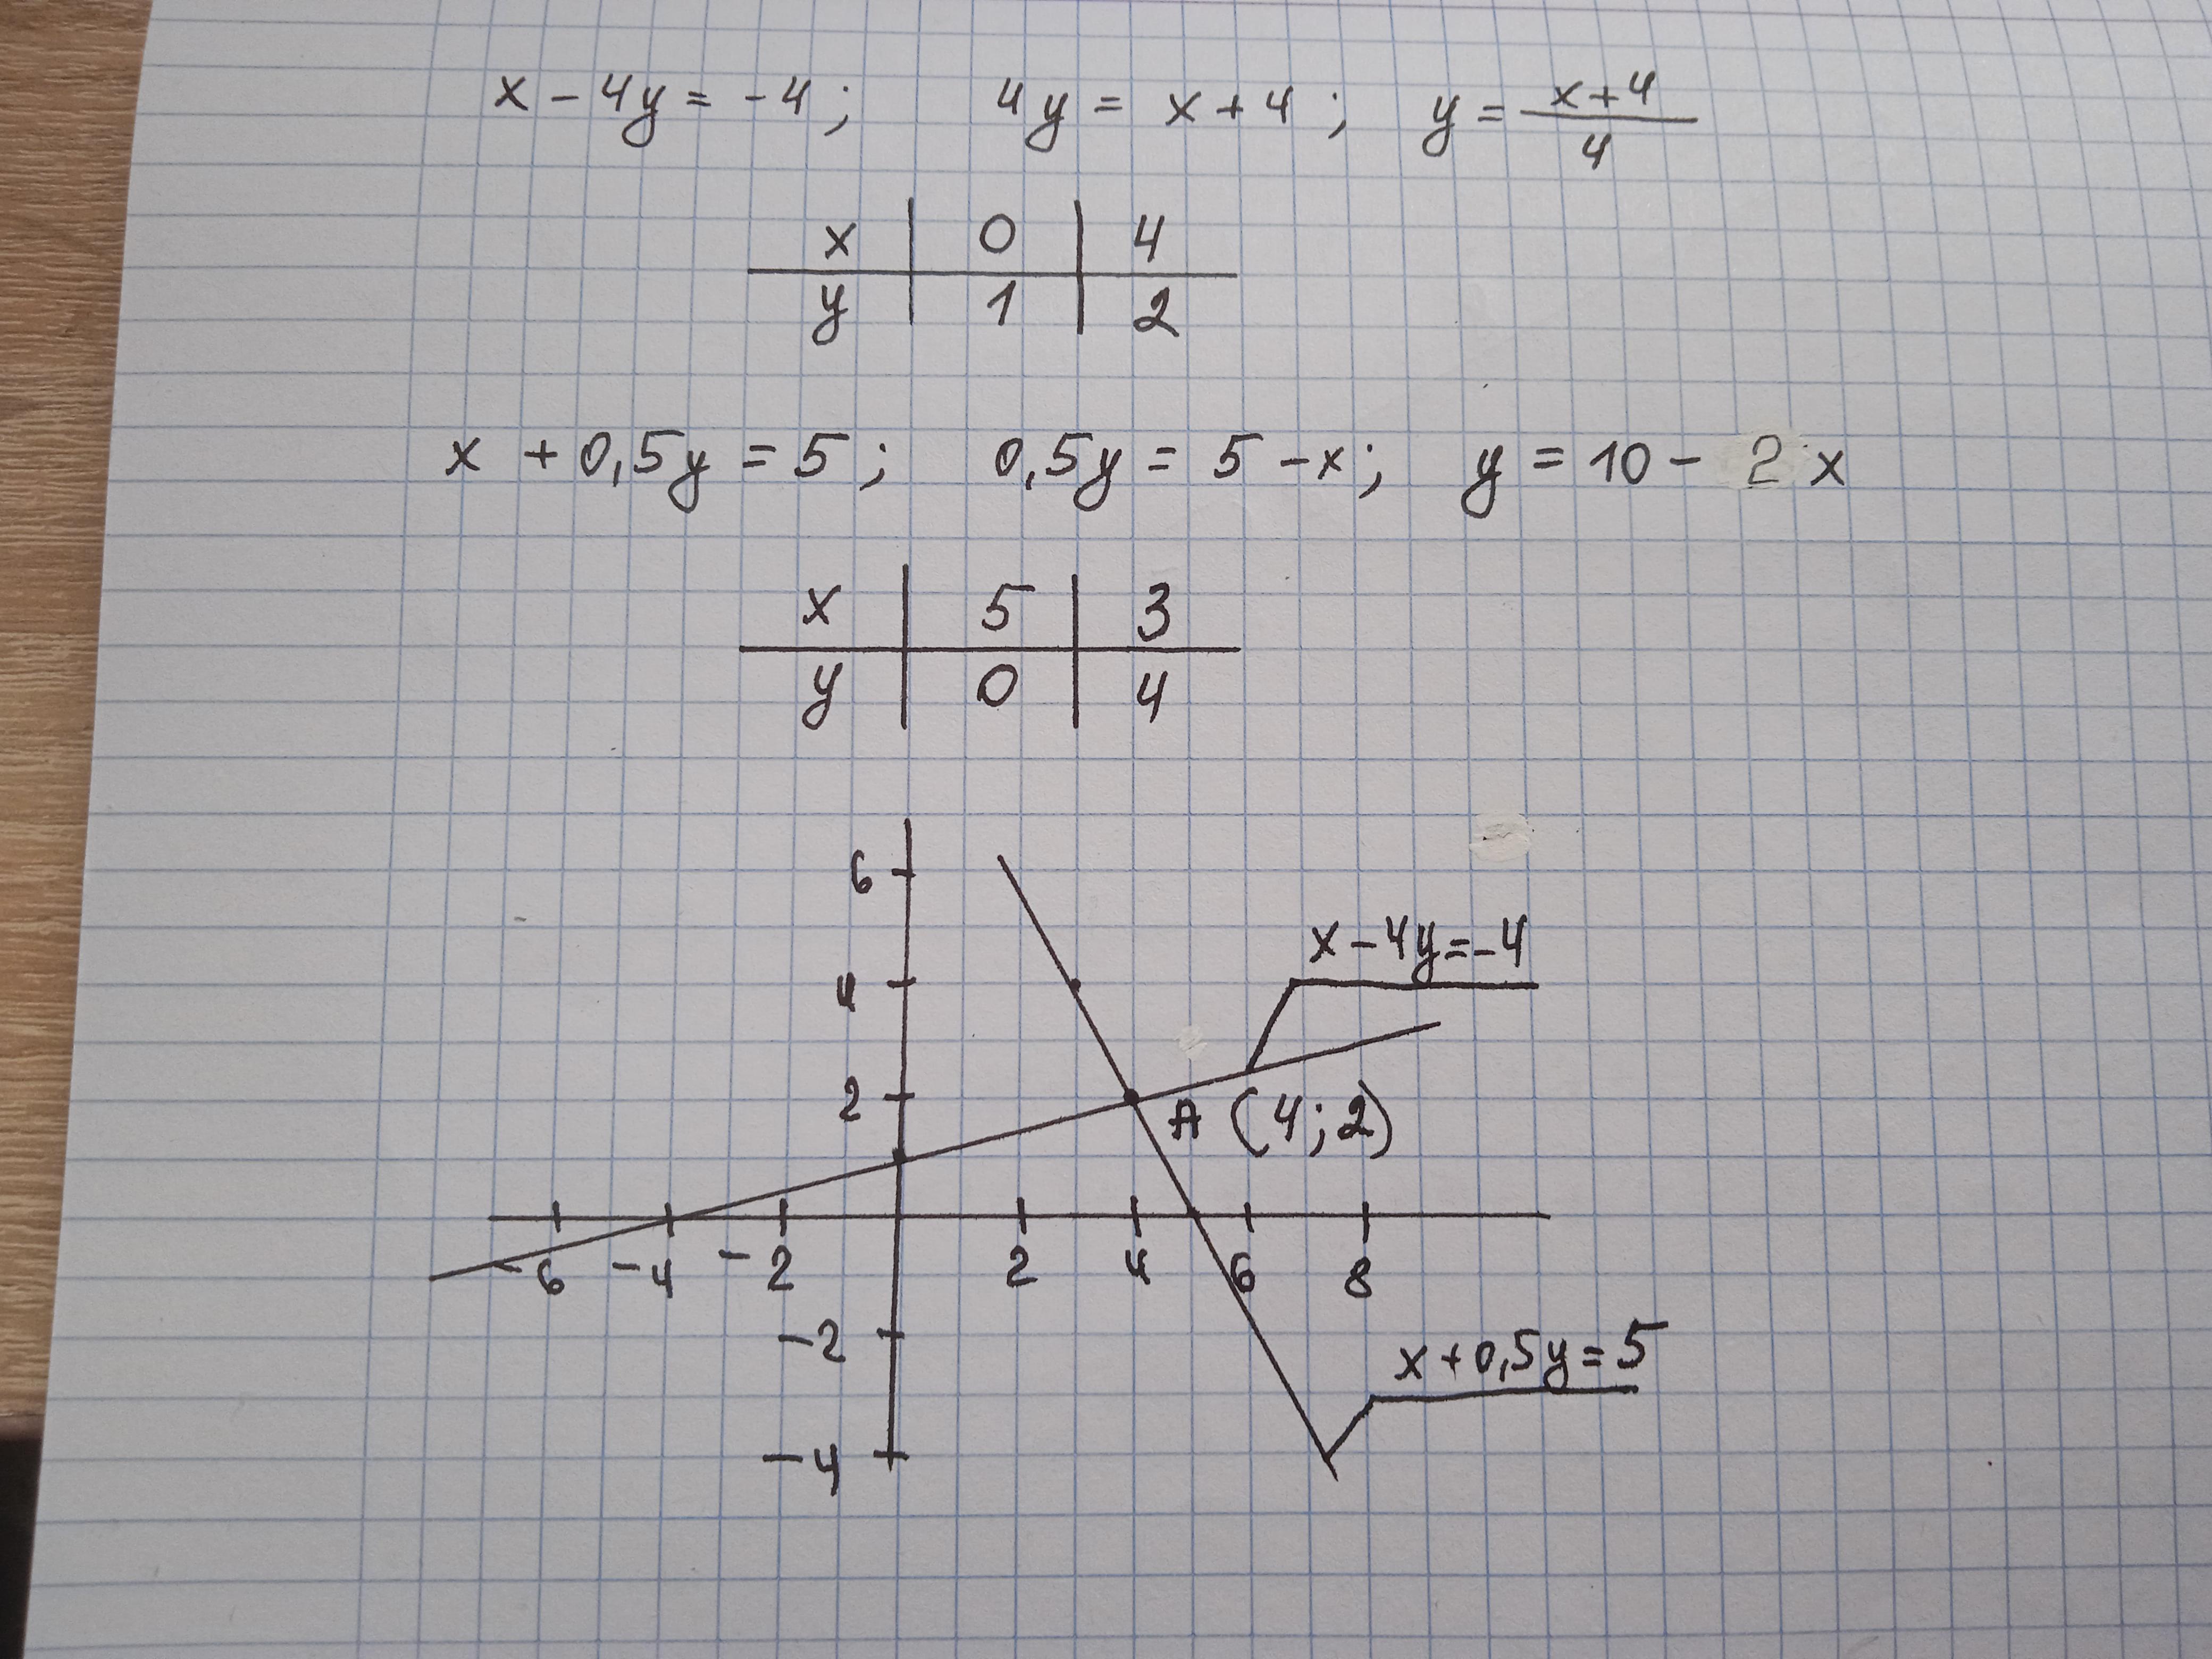 x - 4y = -4; 4y = x + 4; y = (x+4)/4
x | 0 | 4
y | 1 | 2
x + 0,5y = 5; 0,5y = 5 - x; y = 10 - 2x
x | 5 | 3
y | 0 | 4
6
x - 4y = -4
4
2
A (4; 2)
-6 -4 -2 2 4 6 8
-2
x + 0,5y = 5
-4